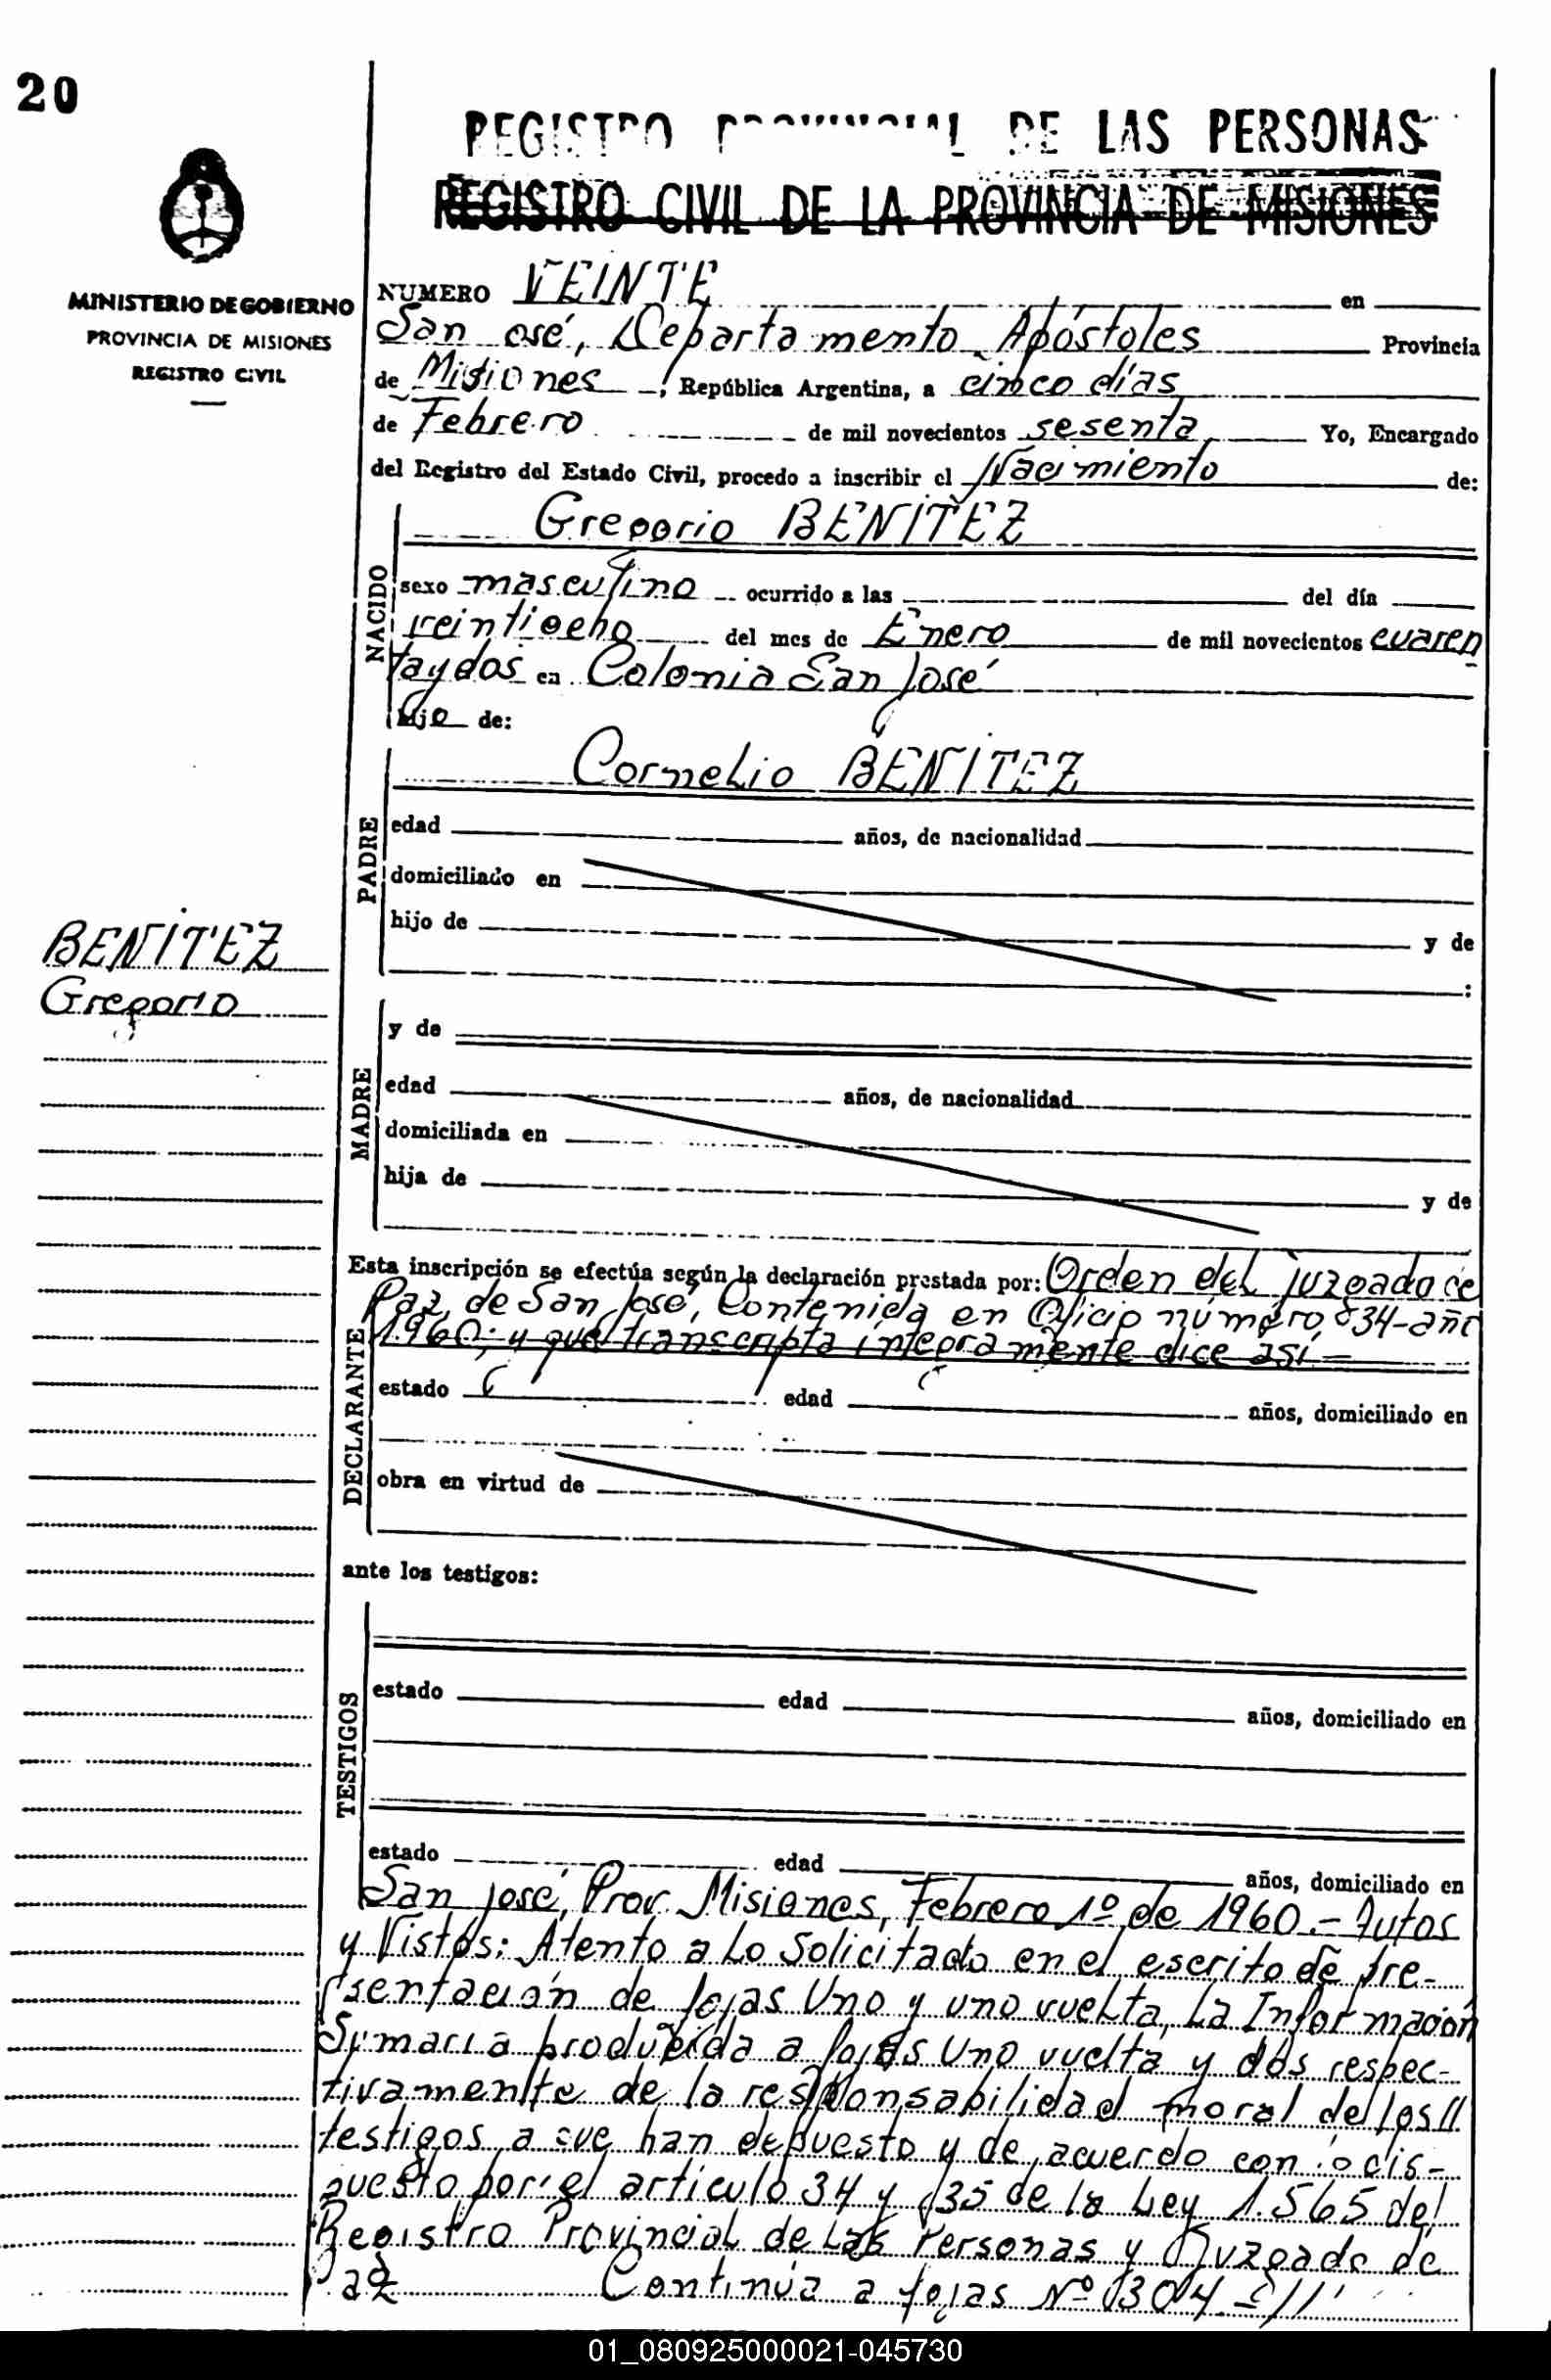 20
REGISTRO PROVINCIAL DE LAS PERSONAS
REGISTRO CIVIL DE LA PROVINCIA DE MISIONES
MINISTERIO DE GOBIERNO
PROVINCIA DE MISIONES
REGISTRO CIVIL
NUMERO VEINTE en
San José, Departamento Apóstoles Provincia
de Misiones, República Argentina, a cinco días
de Febrero de mil novecientos sesenta, Yo, Encargado
del Registro del Estado Civil, procedo a inscribir el Nacimiento de:
NACIDO
Gregorio BENITEZ
sexo masculino ocurrido a las del día
veintiocho del mes de Enero de mil novecientos cuaren
taydos en Colonia San José
hijo de:
PADRE
Cornelio BENITEZ
edad años, de nacionalidad
domiciliado en
hijo de y de
:
BENITEZ
Gregorio
MADRE
y de
edad años, de nacionalidad
domiciliada en
hija de y de
Esta inscripción se efectúa según la declaración prestada por: Orden del juzgado de
Paz de San José, Contenida en Oficio número 834-año
1960; y que transcripta íntegramente dice así-
DECLARANTE
estado edad años, domiciliado en
obra en virtud de
ante los testigos:
TESTIGOS
estado edad años, domiciliado en
estado edad años, domiciliado en
San José, Prov. Misiones, Febrero 1º de 1960.- Autos
y Vistos: Atento a lo Solicitado en el escrito de pre-
sentación de fojas Uno y uno vuelta, La Información
Sumaria producida a fojas Uno vuelta y dos respec-
tivamente de la responsabilidad moral de los //
testigos a que han depuesto y de acuerdo con lo dis-
puesto por el artículo 34 y 35 de la Ley 1.565 del
Registro Provincial de Las Personas y Juzgado de
Paz Continúa a fojas Nº 304 - ///
01_080925000021-045730